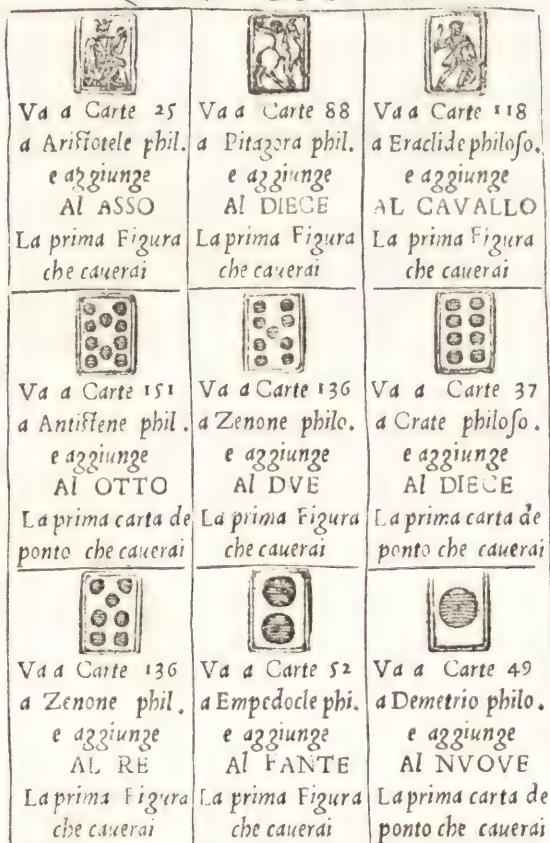 Va a Carte 25
a Ariſtotele phil.
e aggiunge
Al ASSO
La prima Figura
che cauerai
Va a Carte 88
a Pitagora phil.
e aggiunge
Al DIECE
La prima Figura
che cauerai
Va a Carte 118
a Eraclide philoſo.
e aggiunge
AL CAVALLO
La prima Figura
che cauerai
Va a Carte 151
a Antiſtene phil.
e aggiunge
Al OTTO
La prima carta de
ponto che cauerai
Va a Carte 136
a Zenone philo.
e aggiunge
Al DVE
La prima Figura
che cauerai
Va a Carte 37
a Crate philoſo.
e aggiunge
Al DIECE
La prima carta de
ponto che cauerai
Va a Carte 136
a Zenone phil.
e aggiunge
AL RE
La prima Figura
che cauerai
Va a Carte 52
a Empedocle phi.
e aggiunge
Al FANTE
La prima Figura
che cauerai
Va a Carte 49
a Demetrio philo.
e aggiunge
Al NVOVE
La prima carta de
ponto che cauerai